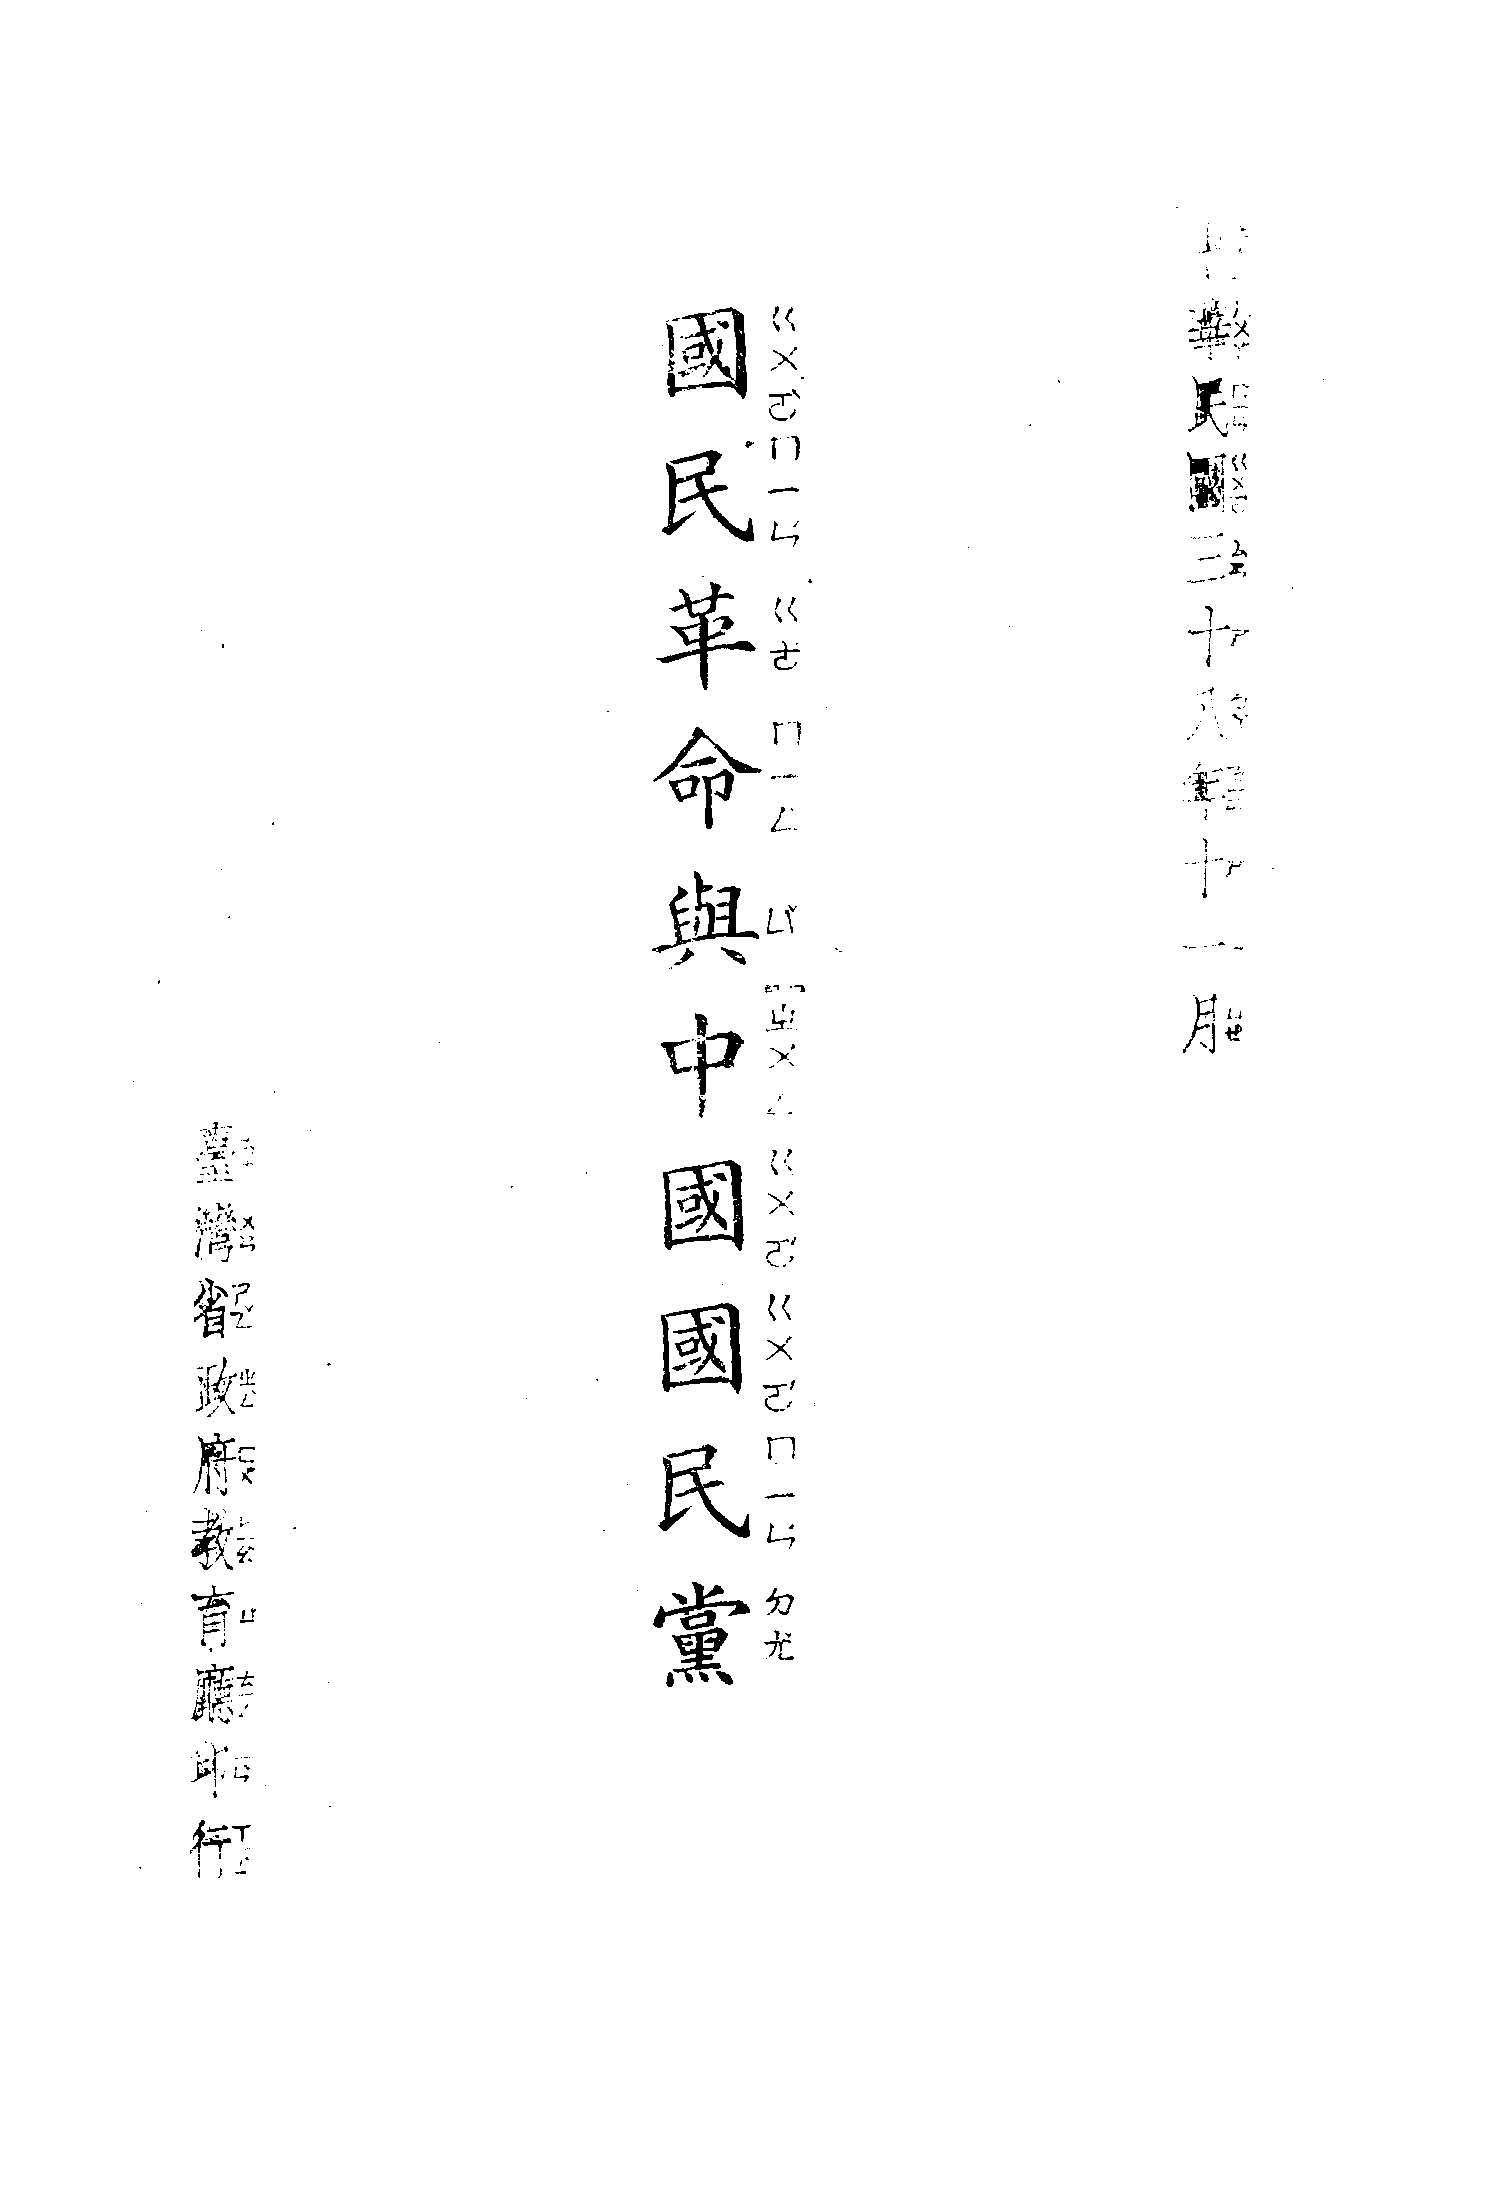 中華民國三十八年十一月
國民革命與中國國民黨
臺灣省政府教育廳印行